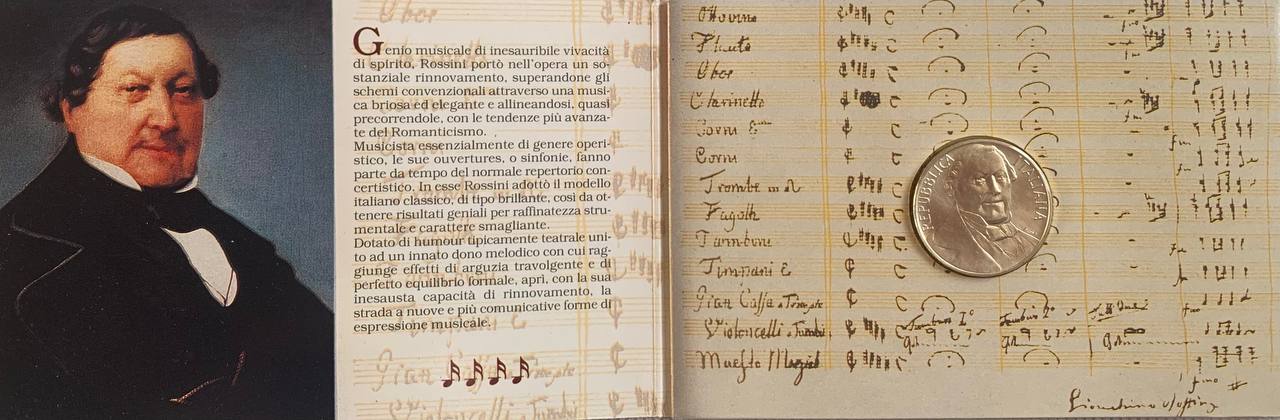 Oboe
Genio musicale di inesauribile vivacità
di spirito, Rossini portò nell'opera un so-
stanziale rinnovamento, superandone gli
schemi convenzionali attraverso una musi-
ca briosa ed elegante e allineandosi, quasi
precorrendole, con le tendenze più avanza-
te del Romanticismo.
Musicista essenzialmente di genere operi-
stico, le sue ouvertures, o sinfonie, fanno
parte da tempo del normale repertorio con-
certistico. In esse Rossini adottò il modello
italiano classico, di tipo brillante, così da ot-
tenere risultati geniali per raffinatezza stru-
mentale e carattere smagliante.
Dotato di humour tipicamente teatrale uni-
to ad un innato dono melodico con cui rag-
giunge effetti di arguzia travolgente e di
perfetto equilibrio formale, aprì, con la sua
inesausta capacità di rinnovamento, la
strada a nuove e più comunicative forme di
espressione musicale.
Gran Cassa e Triangolo
Violoncelli
Ottavino
Flauto
Oboe
Clarinetto
Corni
Corni
Trombe
Fagotti
Tromboni
Timpani
Gran Cassa e Triangolo
Violoncelli
REPUBBLICA ITALIANA